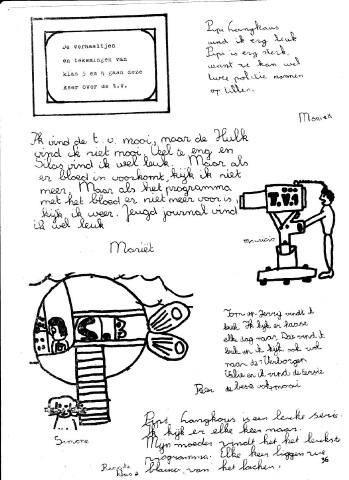 De verhaaltjen
en tekeningen van
klas 3 en 4 gaan deze
keer over de t.v.
Pipi Langkous
vind ik erg leuk
Pipi is erg sterk,
want ze kan wel
twee politie mannen
op tillen.
Moniek
Ik vind de t.v. mooi, maar de Hulk
vind ik niet mooi. Veel te eng en
Silas vind ik wel leuk. Maar als
er bloed in voorkomt, kijk ik niet
meer. Maar als het programma
met het bloed er niet meer voor is,
kijk ik weer. Jeugd journaal vind
ik wel leuk
Mariët
T.V.1
mauricio
Tom en Jerry vindt ik
leuk Ik kijk er haast
elke dag naar. Dat vind ik
leuk en ik kijk ook wel
naar de Verborgen
Vallei en ik vind de eerste
de beste ook mooi
Simone
Pipi Langkous is een leuke serie.
Ik kijk er elke keer naar.
Mijn moeder vindt het het leukste
programma. Elke keer liggen we
blauw van het lachen.
Renate
36